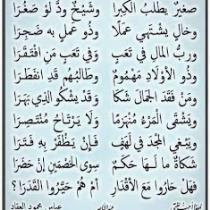 صغيرٌ يطلبُ الكبرا وشيخٌ ودَّ لو صغرا
وخالٍ يشتهي عملًا وذو عملٍ به ضجرا
وربُّ المال في تعبٍ وفي تعبٍ من افتقرا
وذو الأولاد مهمومٌ وطالبهم قد انفطرا
ومن فقد الجمال شكا وقد يشكو الذي بهرا
ويشقى المرء منهزمًا ولا يرتاح منتصرا
فإن يظفر به فترا
شكاةٌ ما لها حكمٌ سوى الخصمين إن حضرا
فهل حاروا مع الأقدار أم هم حيّروا القدرا؟
عباس محمود العقاد